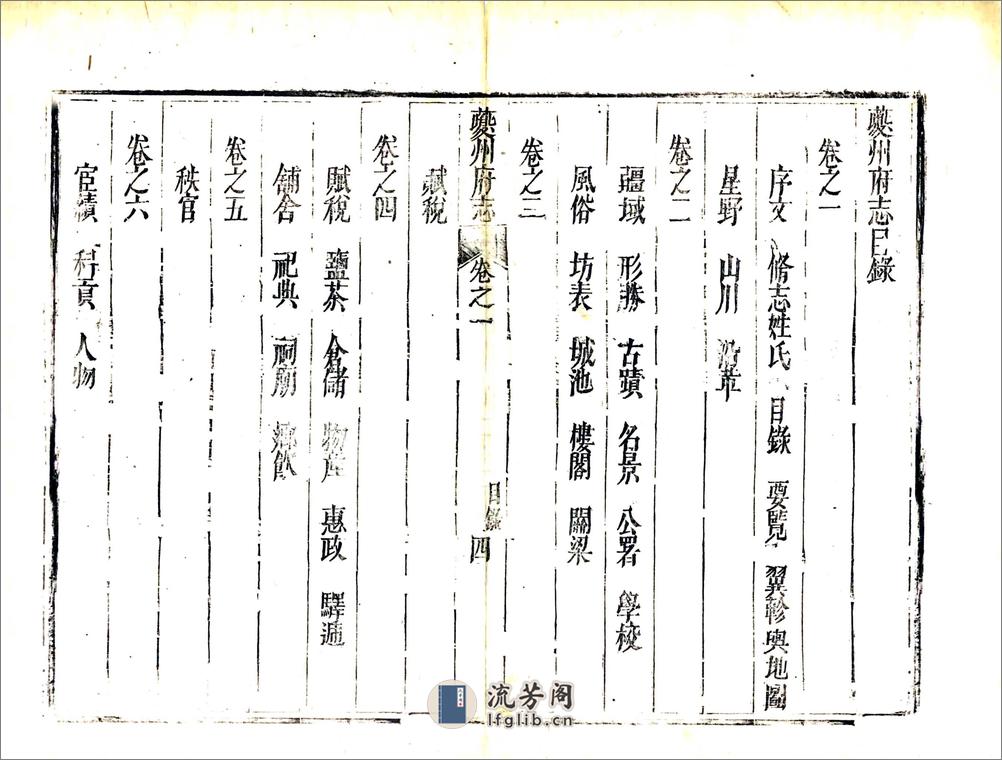 夔州府志目錄
卷之一
序文 脩志姓氏 目錄 要覽 翼軫輿地圖
星野 山川 沿革
卷之二
疆域 形勝 古蹟 名景 公署 學校
風俗 坊表 城池 樓閣 關梁
卷之三
賦稅
夔州府志 卷之一 目錄 四
卷之四
賦稅 鹽茶 倉儲 物產 惠政 驛遞
舖舍 祀典 祠廟 鄉飲
卷之五
秩官
卷之六
宦績 科貢 人物
流芳阁
lfglib.cn